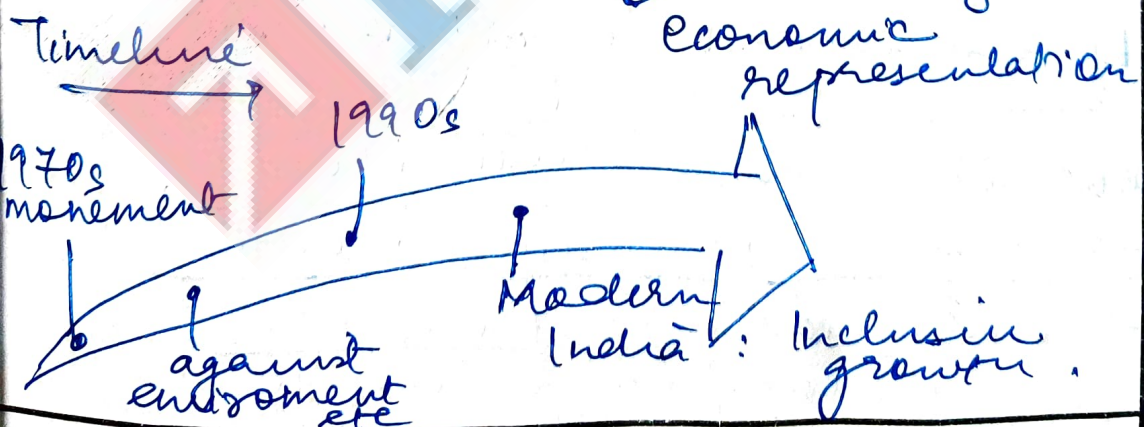 Timeline
economic
representation
1990s
1970s
movement
against
enviroment
etc
Modern
India : Inclusive
growth.